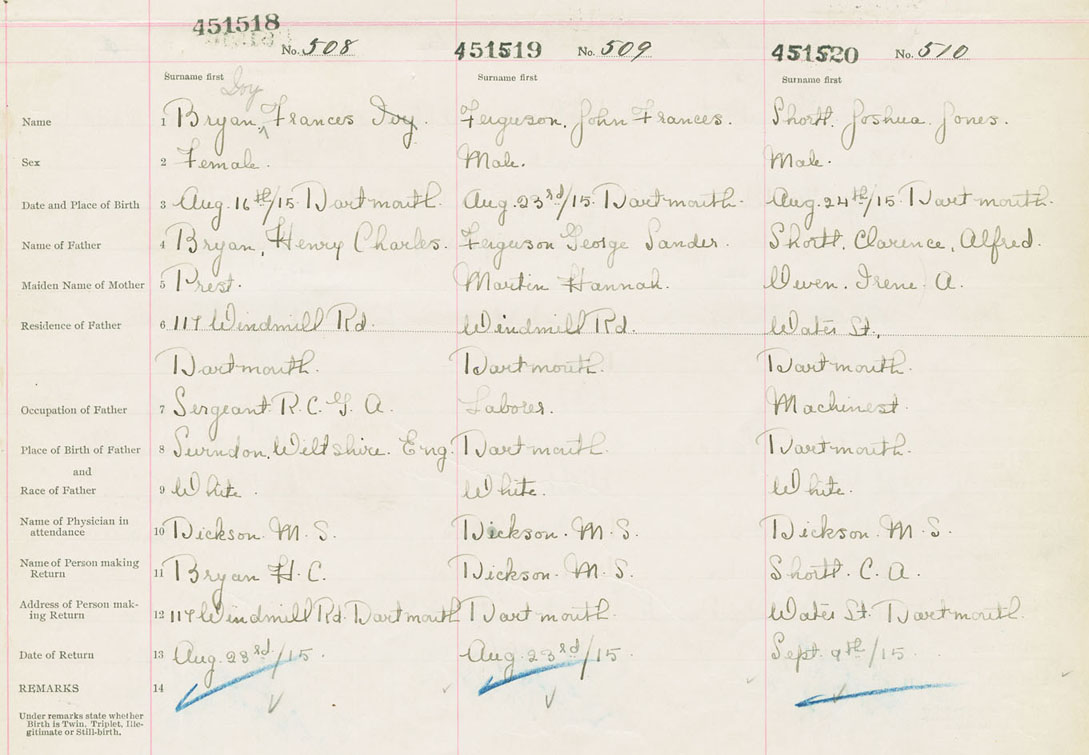 451518 No. 508 451519 No. 509 451520 No. 510
Surname first Surname first Surname first
Ivy
Name 1 Bryan, Frances Ivy. Ferguson, John Frances. Shortt. Joshua. Jones.
Sex 2 Female. Male. Male.
Date and Place of Birth 3 Aug. 16th/15. Dartmouth. Aug. 23rd/15. Dartmouth. Aug. 24th/15. Dartmouth.
Name of Father 4 Bryan, Henry Charles. Ferguson George Sander. Shortt. Clarence, Alfred.
Maiden Name of Mother 5 Prest. Martin Hannah. Owen. Irene A.
Residence of Father 6 117 Windmill Rd. Windmill Rd. Water St.,
Dartmouth. Dartmouth. Dartmouth.
Occupation of Father 7 Sergeant R. C. G. A. Laborer. Machinest.
Place of Birth of Father 8 Swindon, Wiltshire. Eng. Dartmouth. Dartmouth.
and
Race of Father 9 White. White. White.
Name of Physician in
attendance 10 Dickson. M. S. Dickson. M. S. Dickson. M. S.
Name of Person making
Return 11 Bryan H. C. Dickson. M. S. Shortt. C. A.
Address of Person mak-
ing Return 12 117 Windmill Rd. Dartmouth Dartmouth. Water St. Dartmouth.
Date of Return 13 Aug. 23rd/15. Aug. 23rd/15. Sept. 9th/15.
REMARKS 14
Under remarks state whether
Birth is Twin, Triplet, Ille-
gitimate or Still-birth.